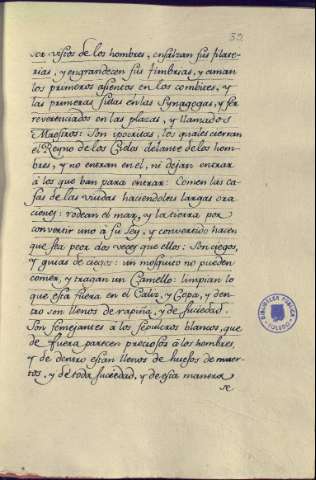 32
ser vistos de los hombres, ensalzan sus filate-
rias, y engrandecen sus fimbrias, y aman
los primeros asientos en los combites, y
las primeras sillas en las Synagogas, y ser
reverenciados en las plazas, y llamados
Maestros: Son ipocritas, los quales cierran
el Reyno de los Cielos delante de los hom-
bres, y no entran en el, ni dejan entrar
â los que ban para entrar: Comen las ca-
sas de las viudas haciendoles largas ora
ciones: rodean el mar, y la tierra por
convertir uno â su ley, y convertido hacen
que sea peor dos veces que ellos: Son ciegos,
y guias de ciegos: un mosquito no pueden
comer, y tragan un Camello: limpian lo
que esta fuera en el Caliz, y Copa, y den-
tro son llenos de rapiña, y de suciedad.
Son semejantes â los sepulcros blancos, que
de fuera parecen preciosos â los hombres,
y de dentro estan llenos de huesos de muer-
tos, y de toda suciedad, y de esta manera
se
BIBLIOTECA PUBLICA
TOLEDO